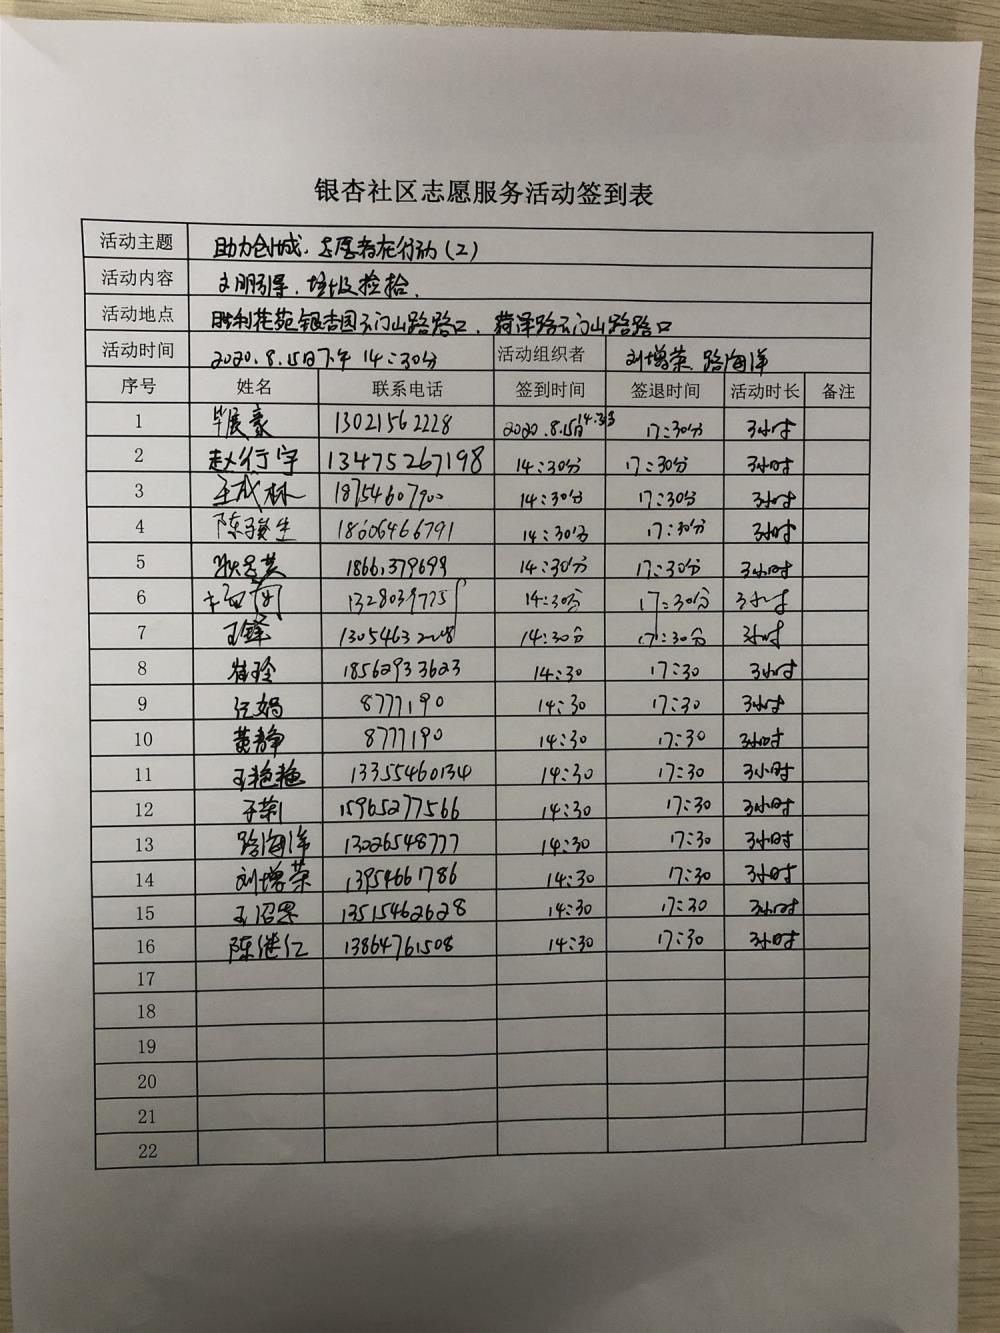 银杏社区志愿服务活动签到表
活动主题 助力创城、志愿者在行动(2)
活动内容 文明引导、垃圾捡拾.
活动地点 胜利花苑银杏园云门山路路口、菏泽路云门山路路口
活动时间 2020.8.15日下午 14:30分 活动组织者 刘增荣 路海洋
序号 姓名 联系电话 签到时间 签退时间 活动时长 备注
1 毕展豪 13021562228 2020.8.15日 17:30分 3小时
2 赵行宇 13475267198 14:30分 17:30分 3小时
3 王成林 18754607900 14:30分 17:30分 3小时
4 陈 生 18606466791 14:30分 17:30分 3小时
5 14:30分 17:30分 3小时
6 14:30分 17:30分 3小时
7 王锋 14:30分 17:30分 3小时
8 崔玲 18562933623 14:30 17:30 3小时
9 8777190 14:30 17:30 3小时
10 黄静 8777190 14:30 17:30 3小时
11 王艳艳 13355460134 14:30 17:30 3小时
12 15965277566 14:30 17:30 3小时
13 路海洋 13026548777 14:30 17:30 3小时
14 刘增荣 13954661786 14:30 17:30 3小时
15 13515462628 14:30 17:30 3小时
16 陈继仁 13864761508 14:30 17:30 3小时
17
18
19
20
21
22